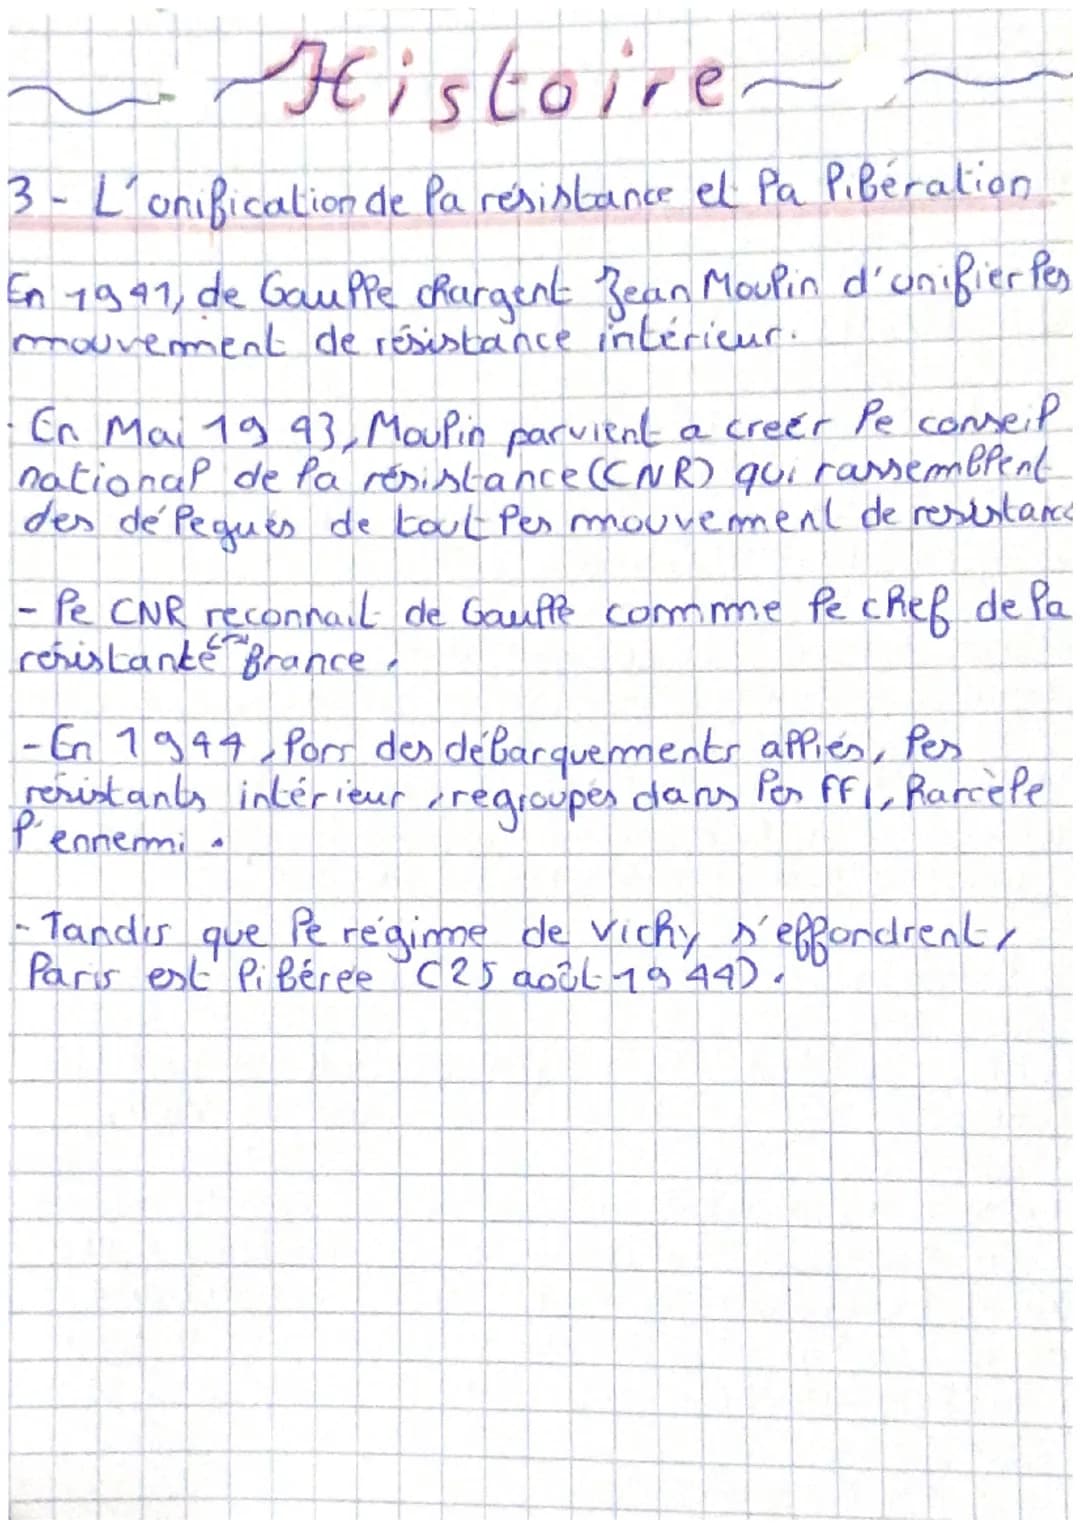 Histoire
3 - L'unification de la résistance et la libération
En 1941, de Gaulle chargent Jean Moulin d'unifier les
mouvemment de résistance intérieur.
- En Mai 1943, Moulin parvient a creér le conseil
national de la résistance (CNR) qui rassemblent
des délegués de tout les mouvement de resistance
- le CNR reconnait de Gaulle commme le chef de la
résistante france.
- En 1944, lors des débarquements alliés, les
résistants intérieur, regroupés dans les FFI, harcèle
l'ennemi.
- Tandis que le régime de vichy s'effondrent,
Paris est libérée (25 août 1944).